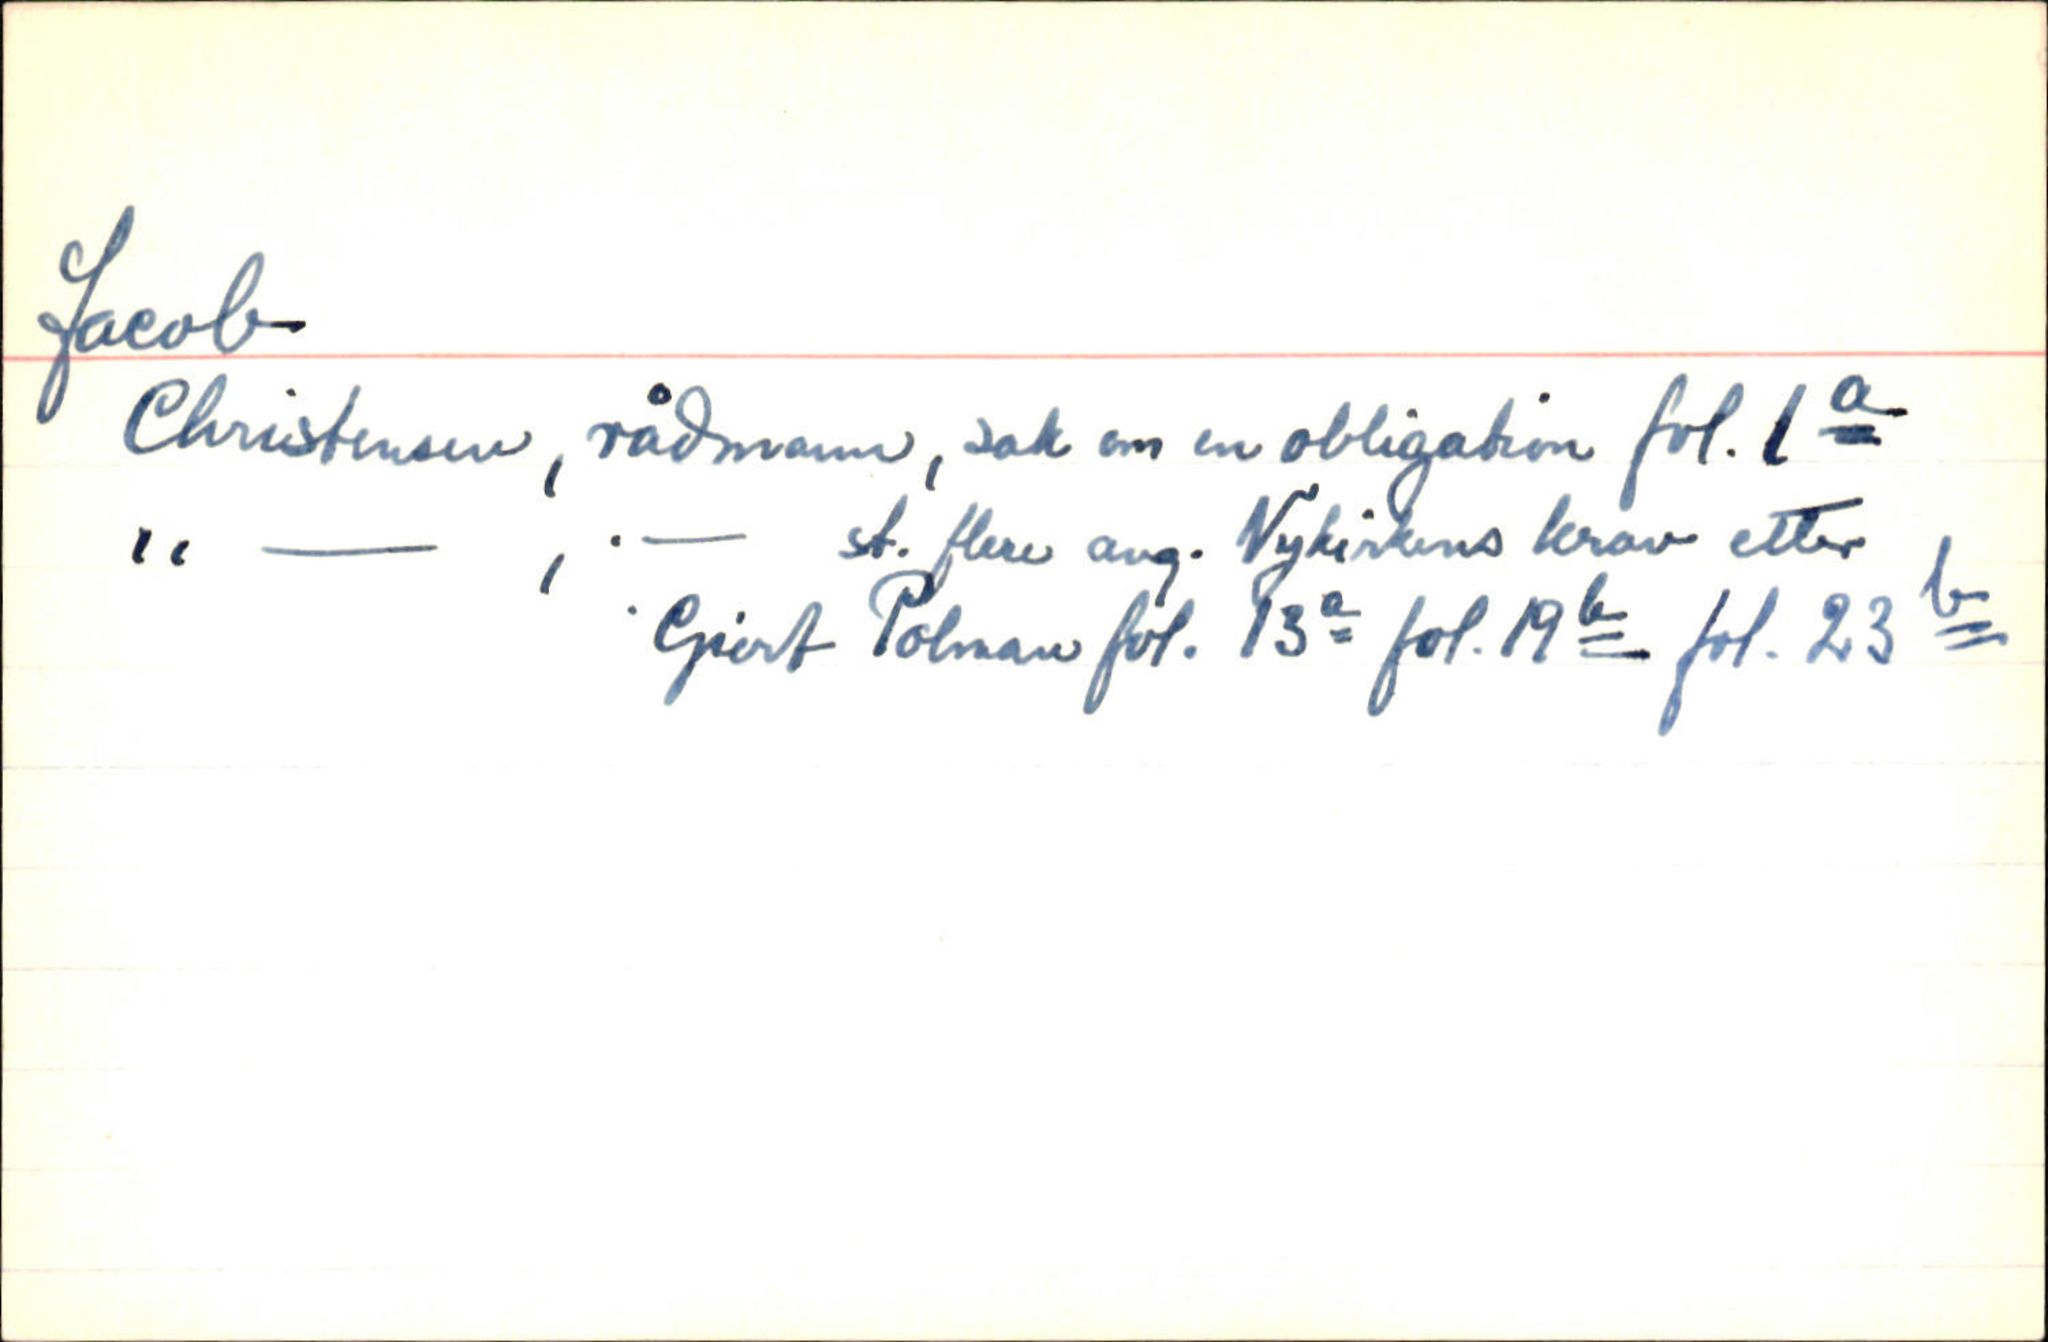 Jacob
Christensen, rådmann, sak om en obligation fol. 1 a
" — , — st. flere ang. Nykirkens krav etter
Giert Polman fol. 13 a fol. 19 b fol. 23 b